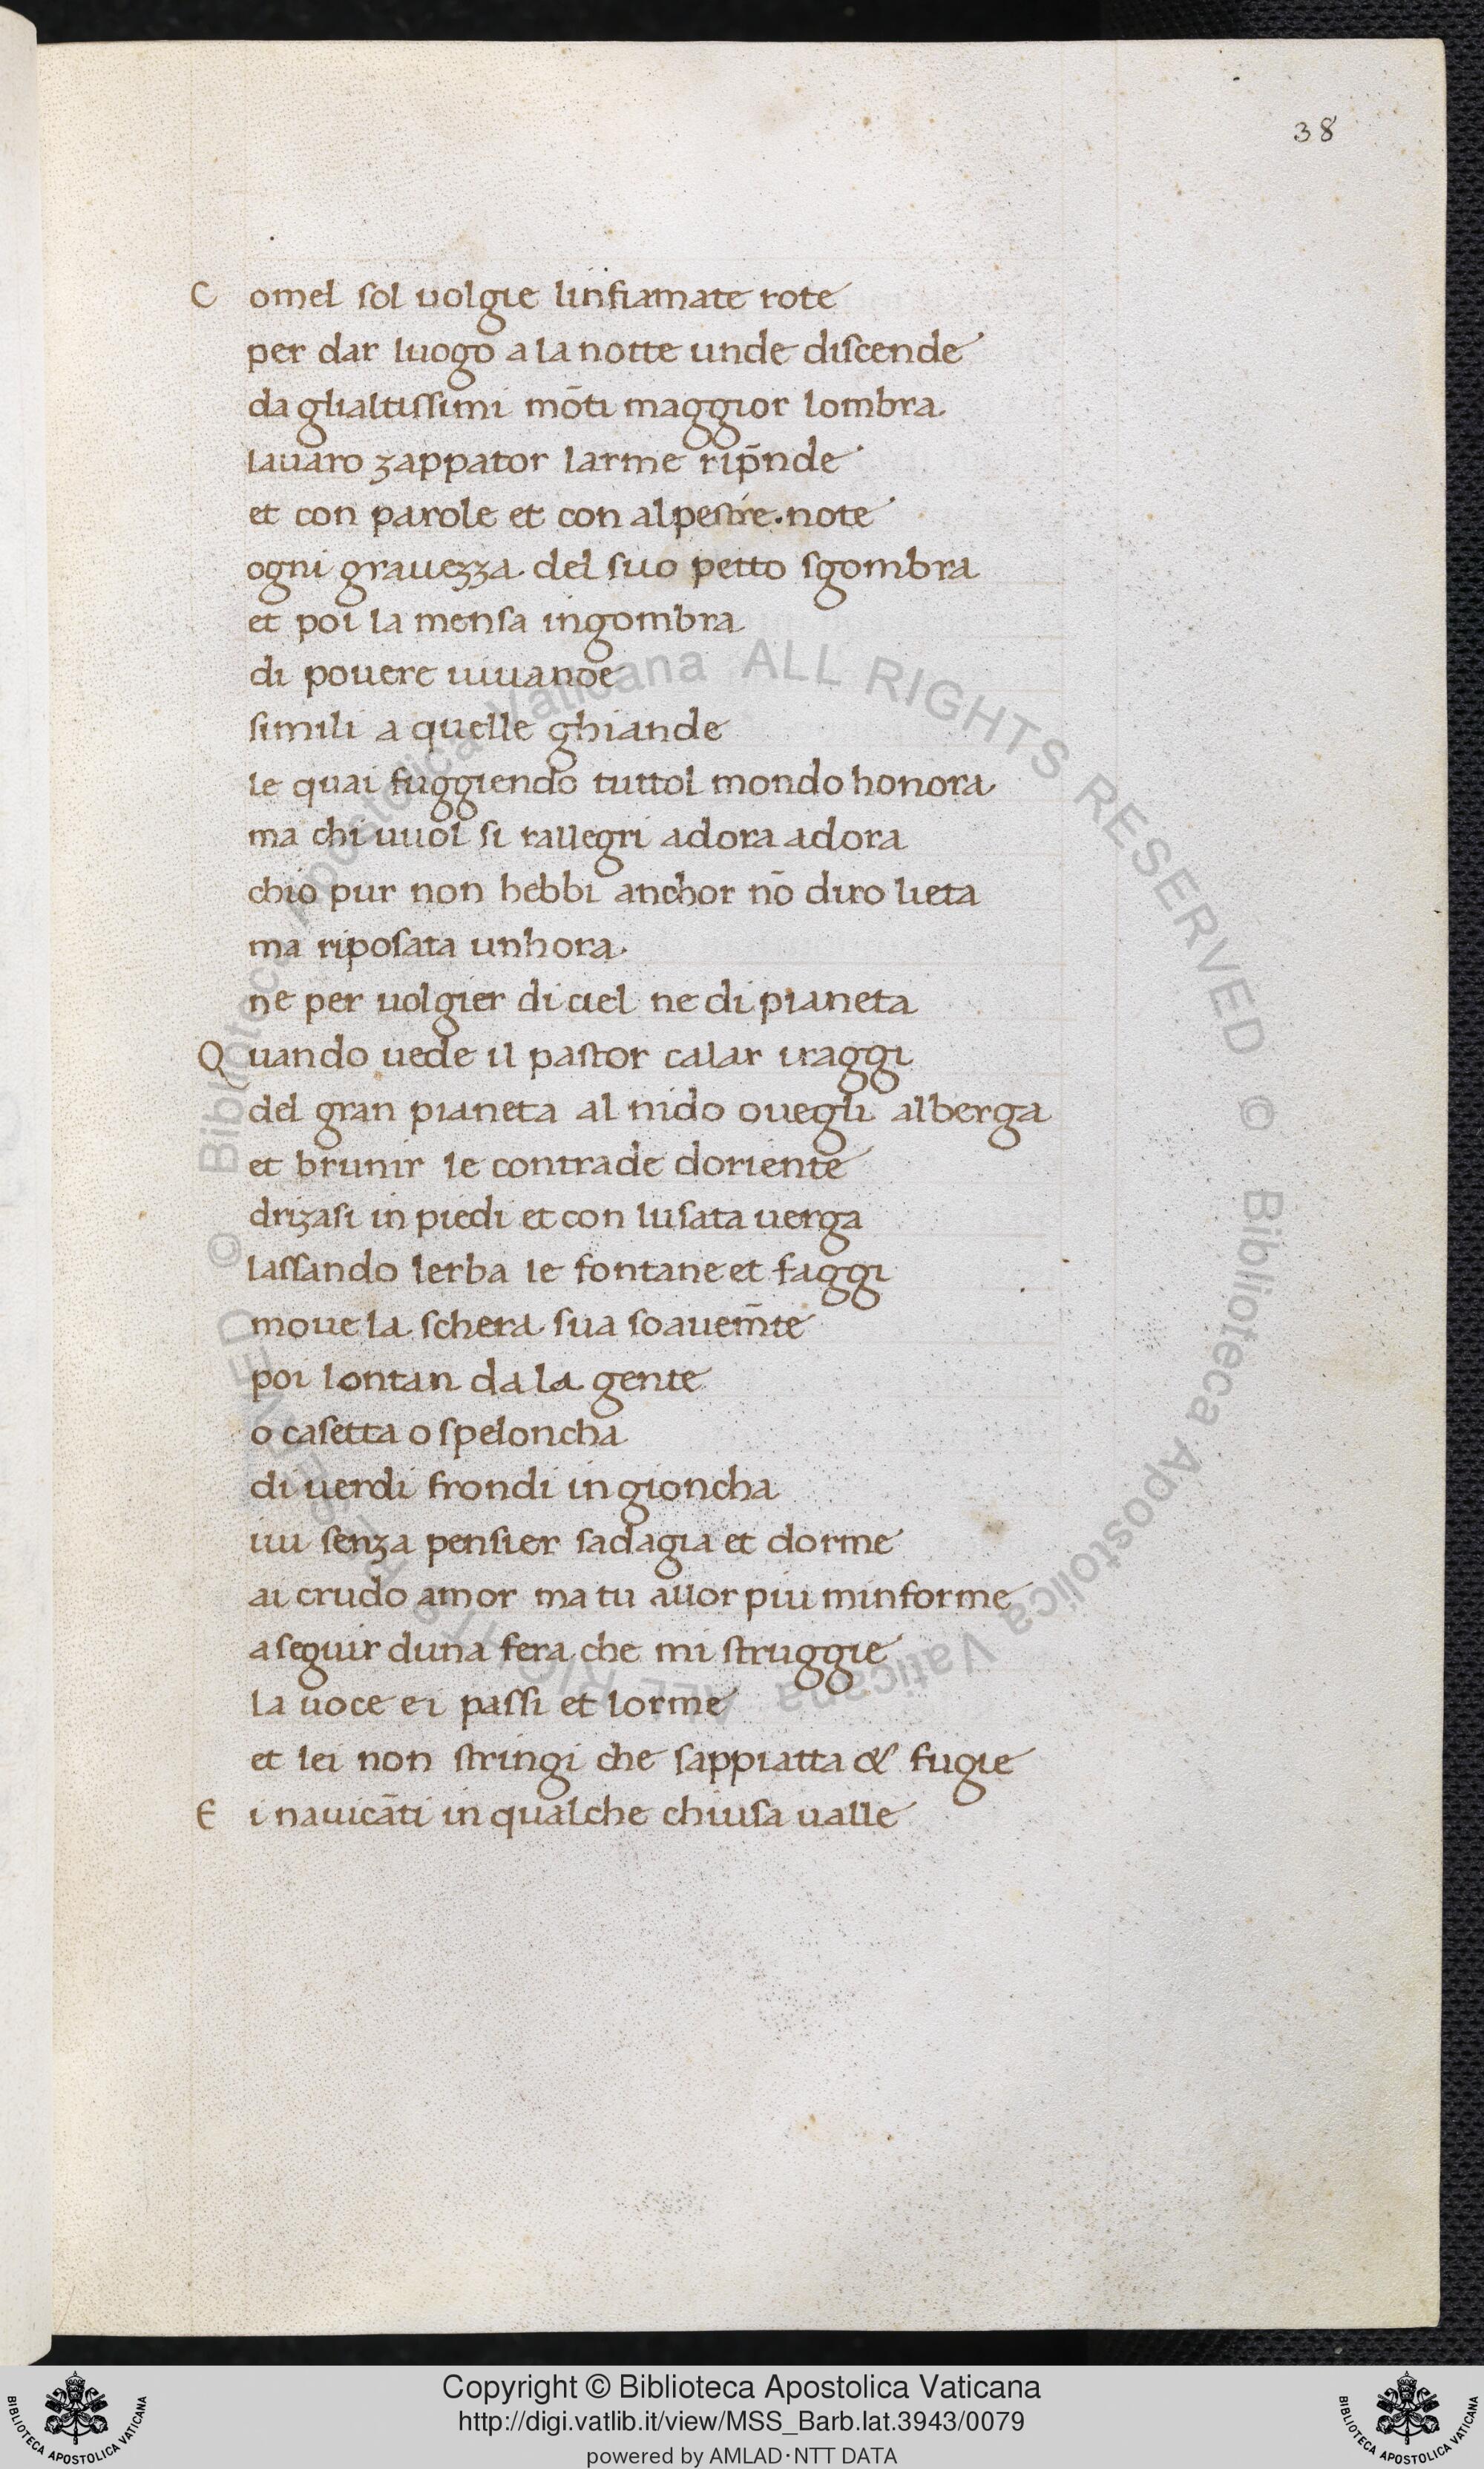 38
C omel sol uolgie linfiamate rote
per dar luogo a la notte unde discende
da glialtissimi mōti maggior lombra
lauaro zappator larme rip̄nde
et con parole et con alpestre. note
ogni grauezza del suo petto sgombra
et poi la mensa ingombra
di pouere uiuande
simili a quelle ghiande
le quai fuggiendo tuttol mondo honora
ma chi uuol si rallegri adora adora
chio pur non hebbi anchor nō diro lieta
ma riposata unhora.
ne per uolgier di ciel ne di pianeta
Q uando uede il pastor calar iraggi
del gran pianeta al nido ouegli alberga
et brunir le contrade doriente
drizasi in piedi et con lusata uerga
lassando lerba le fontane et faggi
moue la schera sua soauem̄te
poi lontan da la gente
o casetta o speloncha
di uerdi frondi in gioncha
iui senza pensier sadagia et dorme
ai crudo amor ma tu allor piu minforme
a seguir duna fera che mi struggie
la uoce e i passi et lorme
et lei non stringi che sappiatta & fugie
E i nauicāti in qualche chiusa ualle
© Biblioteca Apostolica Vaticana ALL RIGHTS RESERVED © Biblioteca Apostolica Vaticana ALL RIGHTS RESERVED
Copyright © Biblioteca Apostolica Vaticana
http://digi.vatlib.it/view/MSS_Barb.lat.3943/0079
powered by AMLAD·NTT DATA
BIBLIOTECA APOSTOLICA VATICANA
BIBLIOTECA APOSTOLICA VATICANA